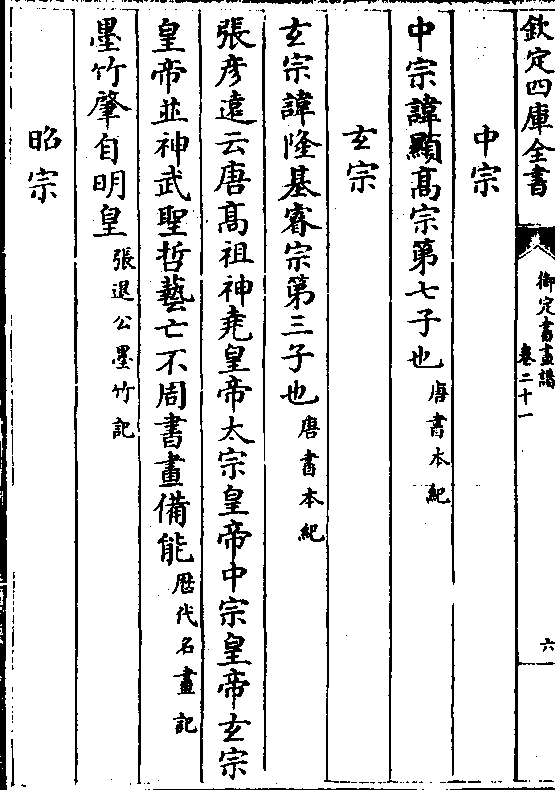 欽定四庫全書
御定書畫譜
卷二十一
六
中宗
中宗諱顯髙宗第七子也唐書本紀
玄宗
玄宗諱隆基睿宗第三子也唐書本紀
張彦逺云唐髙祖神堯皇帝太宗皇帝中宗皇帝玄宗
皇帝並神武聖哲藝亡不周書畫備能歴代名畫記
墨竹肇自明皇張退公墨竹記
昭宗